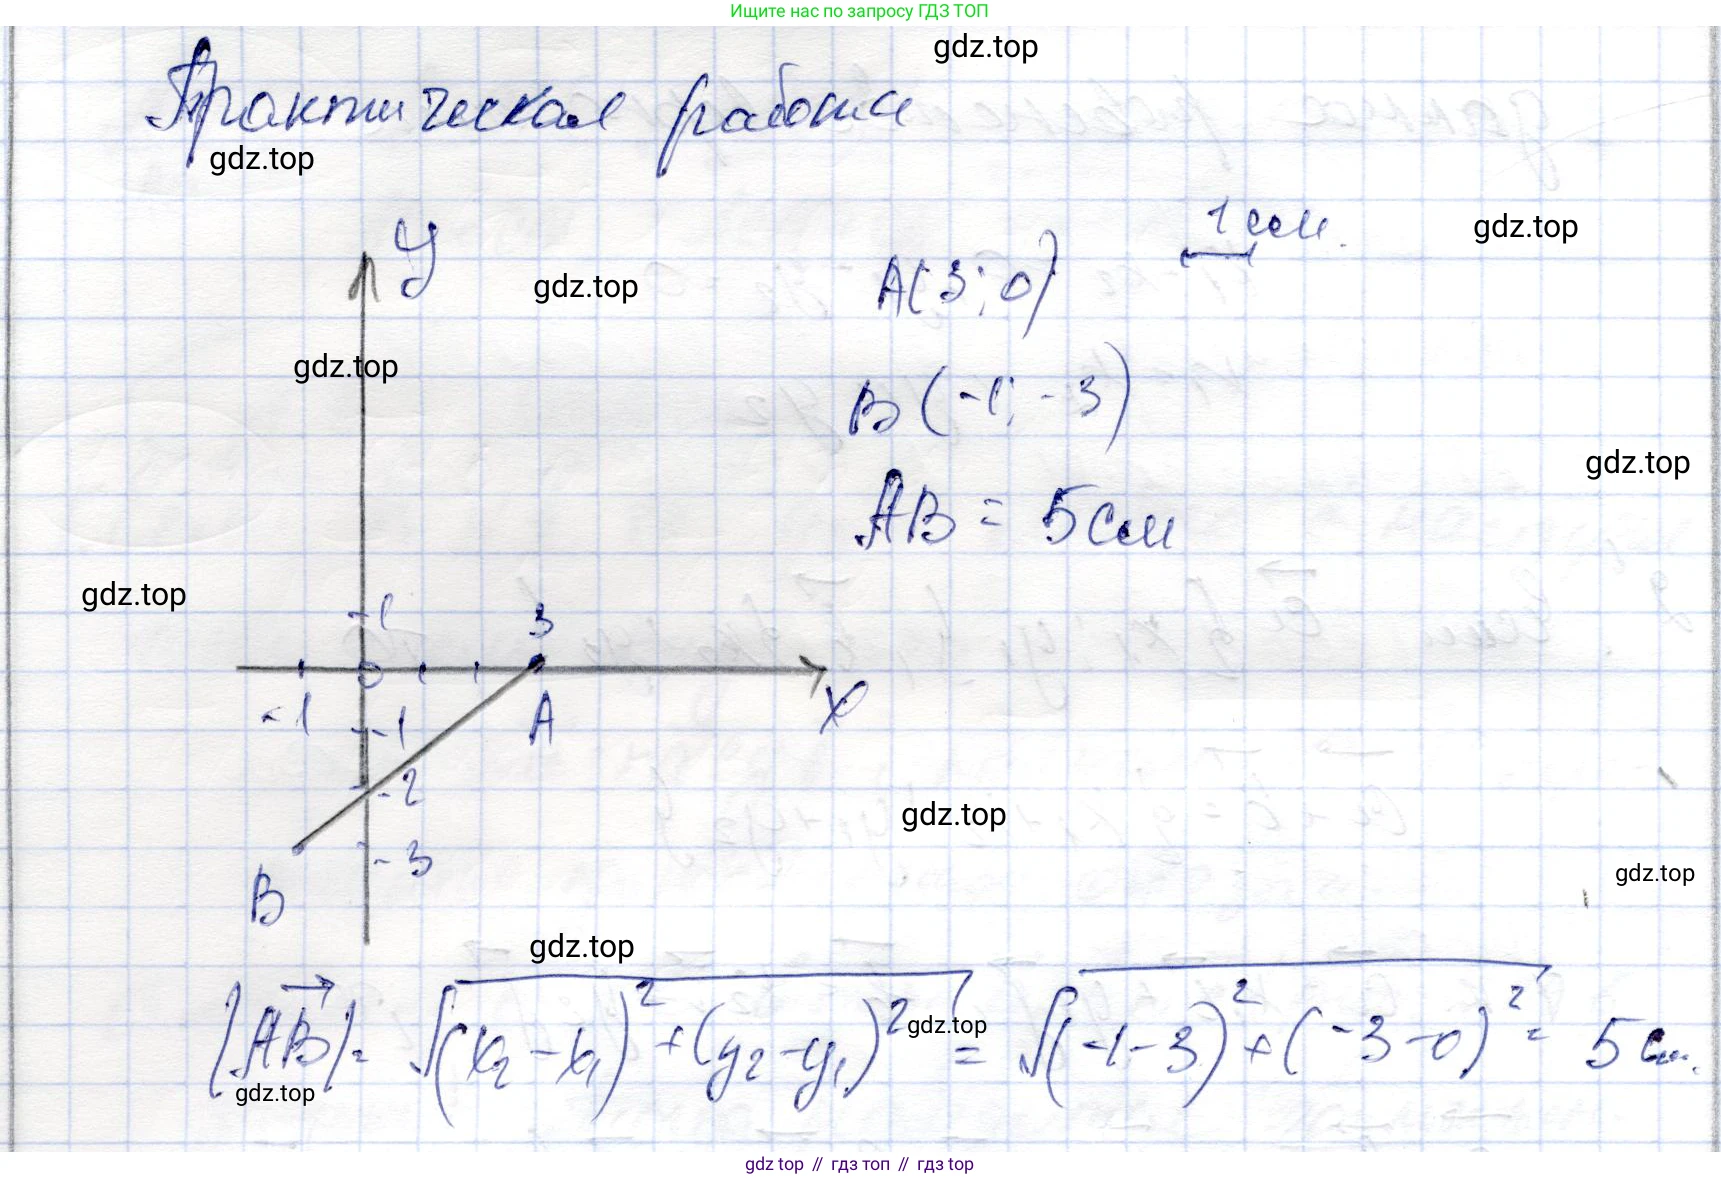 Ищите нас по запросу ГДЗ ТОП
gdz.top
Практическая работа
gdz.top
1 см.
gdz.top
У
A(3; 0)
gdz.top
gdz.top
B(-1; -3)
gdz.top
AB = 5 см
gdz.top
1
3
0
-1
A
X
-1
-2
gdz.top
-3
gdz.top
B
gdz.top
|AB| = √(x₂ - x₁)² + (y₂ - y₁)² = √(-1-3)² + (-3-0)² = 5 см.
gdz.top
gdz.top
gdz top // гдз топ // гдз top